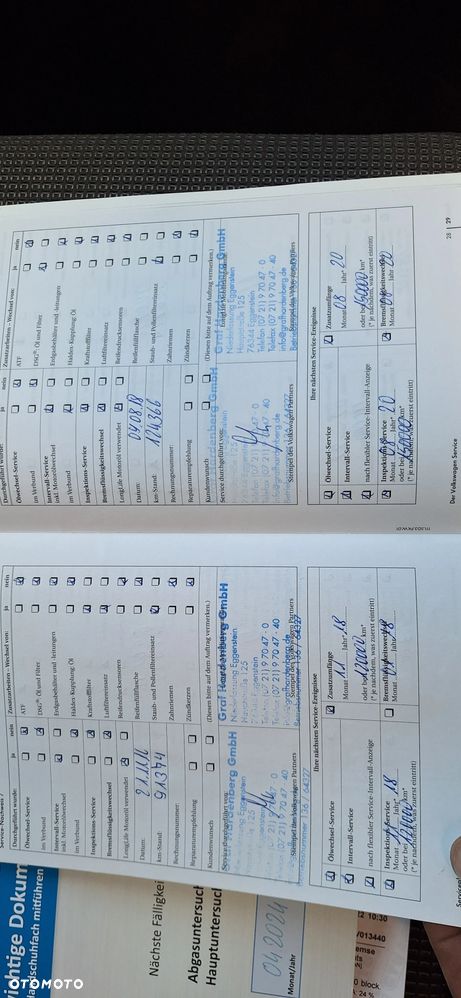 Service-Nachweis 7
Durchgeführt wurde:
ja
nein
Ölwechsel-Service
im Verbund
Intervall-Service
inkl. Motorölwechsel
im Verbund
Inspektions-Service
Bremsflüssigkeitswechsel
LongLife Motoröl verwendet
Datum:
km-Stand:
91374
Rechnungsnummer:
Reparaturempfehlung
Kundenwunsch
(Diesen bitte auf dem Auftrag vermerken.)
Zusatzarbeiten – Wechsel von:
ja
nein
ATF
DSG®: Öl und Filter
Erdgasbehälter und -leitungen
Haldex-Kupplung: Öl
Kraftstofffilter
Luftfiltereinsatz
Reifendruckssensoren
Reifenfüllflasche
Staub- und Pollenfiltereinsatz
Zahnriemen
Zündkerzen
Service durchgeführt von:
Graf Hardenberg GmbH
Niederlassung Eggenstein
Hauptstraße 125
76344 Eggenstein
Telefon (07 21) 9 70 47 - 0
Telefax (07 21) 9 70 47 - 40
Stempel des Volkswagen Partners
Ihre nächsten Service-Ereignisse
Ölwechsel-Service
Intervall-Service
nach flexibler Service-Intervall-Anzeige
Inspektions-Service
Monat
Jahr* 18
oder bei
km*
(* je nachdem, was zuerst eintritt)
Zusatzumfänge
Monat 11 Jahr* 18
oder bei 120000 km*
(* je nachdem, was zuerst eintritt)
Bremsflüssigkeitswechsel
Monat
Jahr 18
Durchgeführt wurde:
ja
nein
Ölwechsel-Service
im Verbund
Intervall-Service
inkl. Motorölwechsel
im Verbund
Inspektions-Service
Bremsflüssigkeitswechsel
LongLife Motoröl verwendet
Datum:
04.08.18
km-Stand:
124366
Rechnungsnummer:
Reparaturempfehlung
Kundenwunsch
(Diesen bitte auf dem Auftrag vermerken.)
Zusatzarbeiten – Wechsel von:
ja
nein
ATF
DSG®: Öl und Filter
Erdgasbehälter und -leitungen
Haldex-Kupplung: Öl
Kraftstofffilter
Luftfiltereinsatz
Reifendruckssensoren
Reifenfüllflasche
Staub- und Pollenfiltereinsatz
Zahnriemen
Zündkerzen
Service durchgeführt von:
Graf Hardenberg GmbH
Niederlassung Eggenstein
Hauptstraße 125
76344 Eggenstein
Telefon (07 21) 9 70 47 - 0
Telefax (07 21) 9 70 47 - 40
info@grafhardenberg.de
Stempel des Volkswagen Partners
Ihre nächsten Service-Ereignisse
Ölwechsel-Service
Intervall-Service
nach flexibler Service-Intervall-Anzeige
Inspektions-Service
Monat 08 Jahr* 20
oder bei
km*
(* je nachdem, was zuerst eintritt)
Zusatzumfänge
Monat 08 Jahr* 20
oder bei 150000 km*
(* je nachdem, was zuerst eintritt)
Bremsflüssigkeitswechsel
Monat 08 Jahr 20
Der Volkswagen Service
28 | 29
Nächste Fälligkeit
Abgasuntersuch
Hauptuntersuc
04 2024
Monat/Jahr
10:30
/013440
emse
block.
OTOMOTO